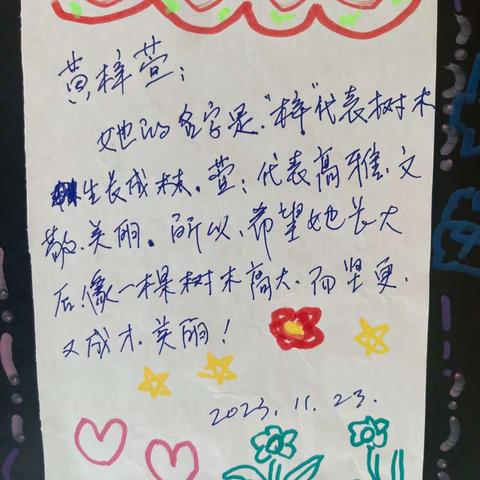 黄梓萱：
她的名字是“梓”代表树木
生长成林。萱：代表高雅、文
静、美丽。所以、希望她长大
后、像一棵树木高大、而坚更、
又成才、美丽！
2023.11.23.